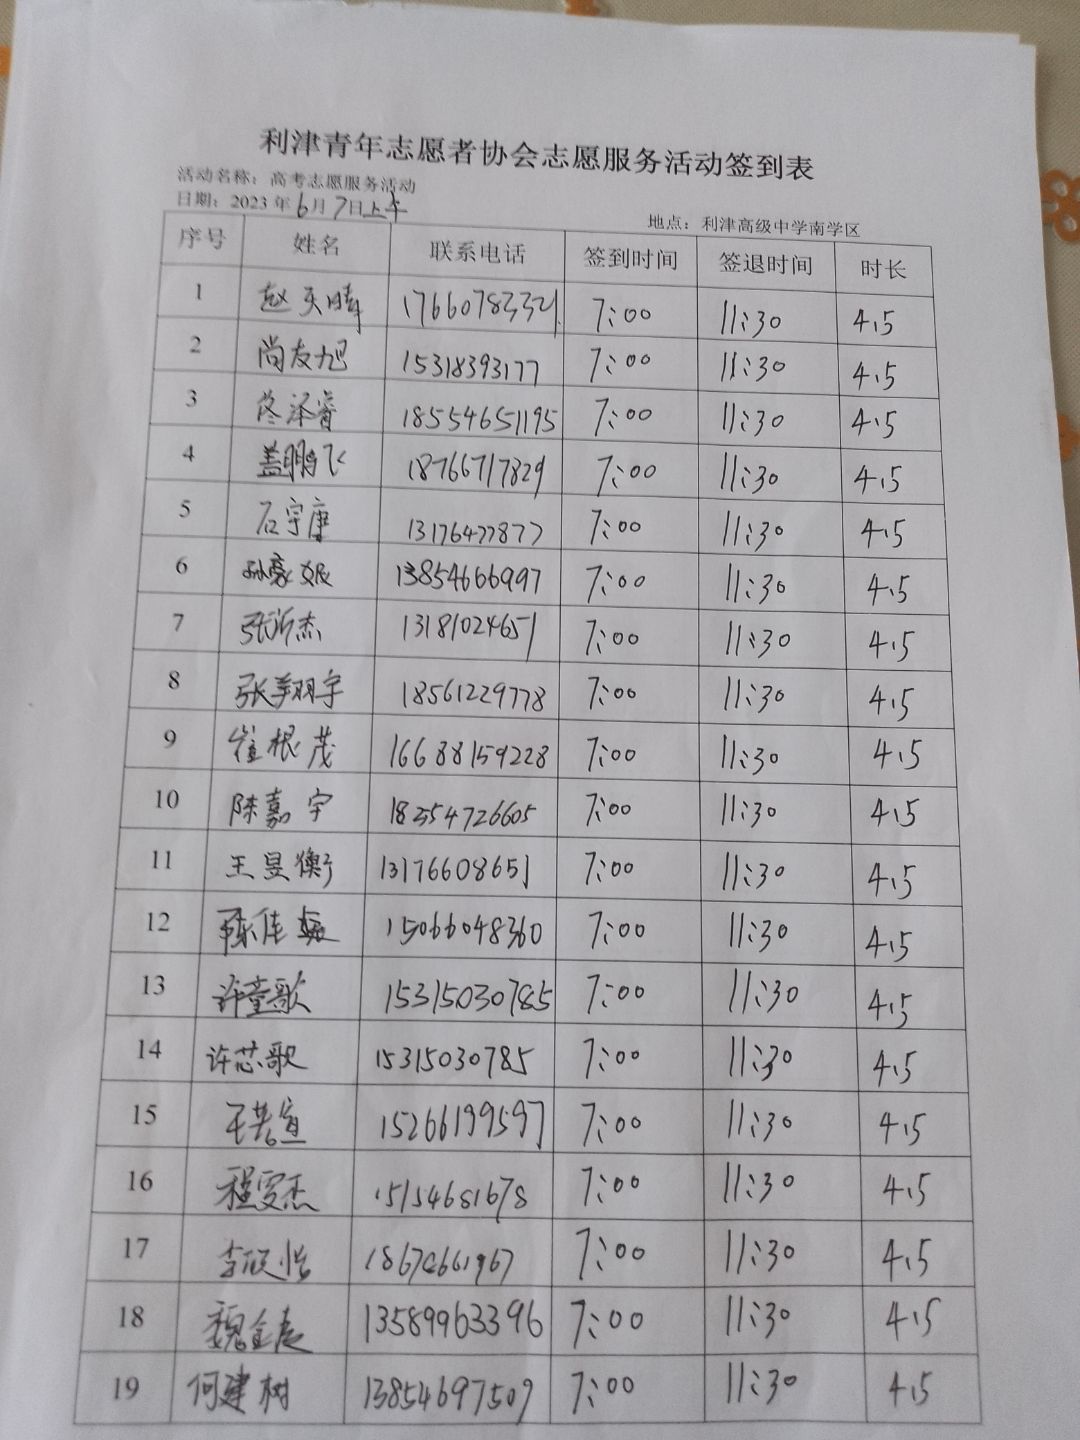 利津青年志愿者协会志愿服务活动签到表
活动名称：高考志愿服务活动
日期：2023年6月7日上午
地点：利津高级中学南学区
序号 姓名 联系电话 签到时间 签退时间 时长
1 赵天晴 17660783321 7:00 11:30 4.5
2 尚友旭 15318393177 7:00 11:30 4.5
3 佟泽睿 18554651195 7:00 11:30 4.5
4 盖鹏飞 18766717829 7:00 11:30 4.5
5 石宇康 13176477877 7:00 11:30 4.5
6 孙豪妮 13854666997 7:00 11:30 4.5
7 张沂杰 13181024651 7:00 11:30 4.5
8 张翔宇 18561229778 7:00 11:30 4.5
9 崔根茂 16688159228 7:00 11:30 4.5
10 陈嘉宇 18354726605 7:00 11:30 4.5
11 王昱衡 13176608651 7:00 11:30 4.5
12 陈佳 15066048360 7:00 11:30 4.5
13 许童歌 15315030785 7:00 11:30 4.5
14 许芯歌 15315030785 7:00 11:30 4.5
15 15266199597 7:00 11:30 4.5
16 程雯杰 15154681678 7:00 11:30 4.5
17 李欣怡 7:00 11:30 4.5
18 魏 13589963396 7:00 11:30 4.5
19 何建树 13854697509 7:00 11:30 4.5